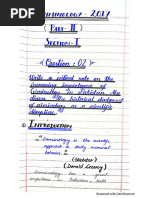 CRIMINOLOGY - 2017
( PART - II )
SECTION - I
Question : 02
Write a critical note on the
increasing importance of
Criminology in Pakistan. Also
the historical
of criminology as a scientific
discipline.
INTRODUCTION
"Criminology is the scientific
approach to study criminal
behavior."
(Donald Cressey)
Criminology has a great
importance in
Scanned with CamScanner